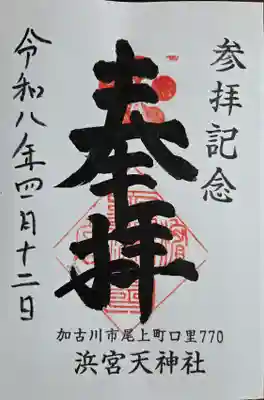 参拝記念
奉拝
令和八年四月十二日
加古川市尾上町口里770
浜宮天神社